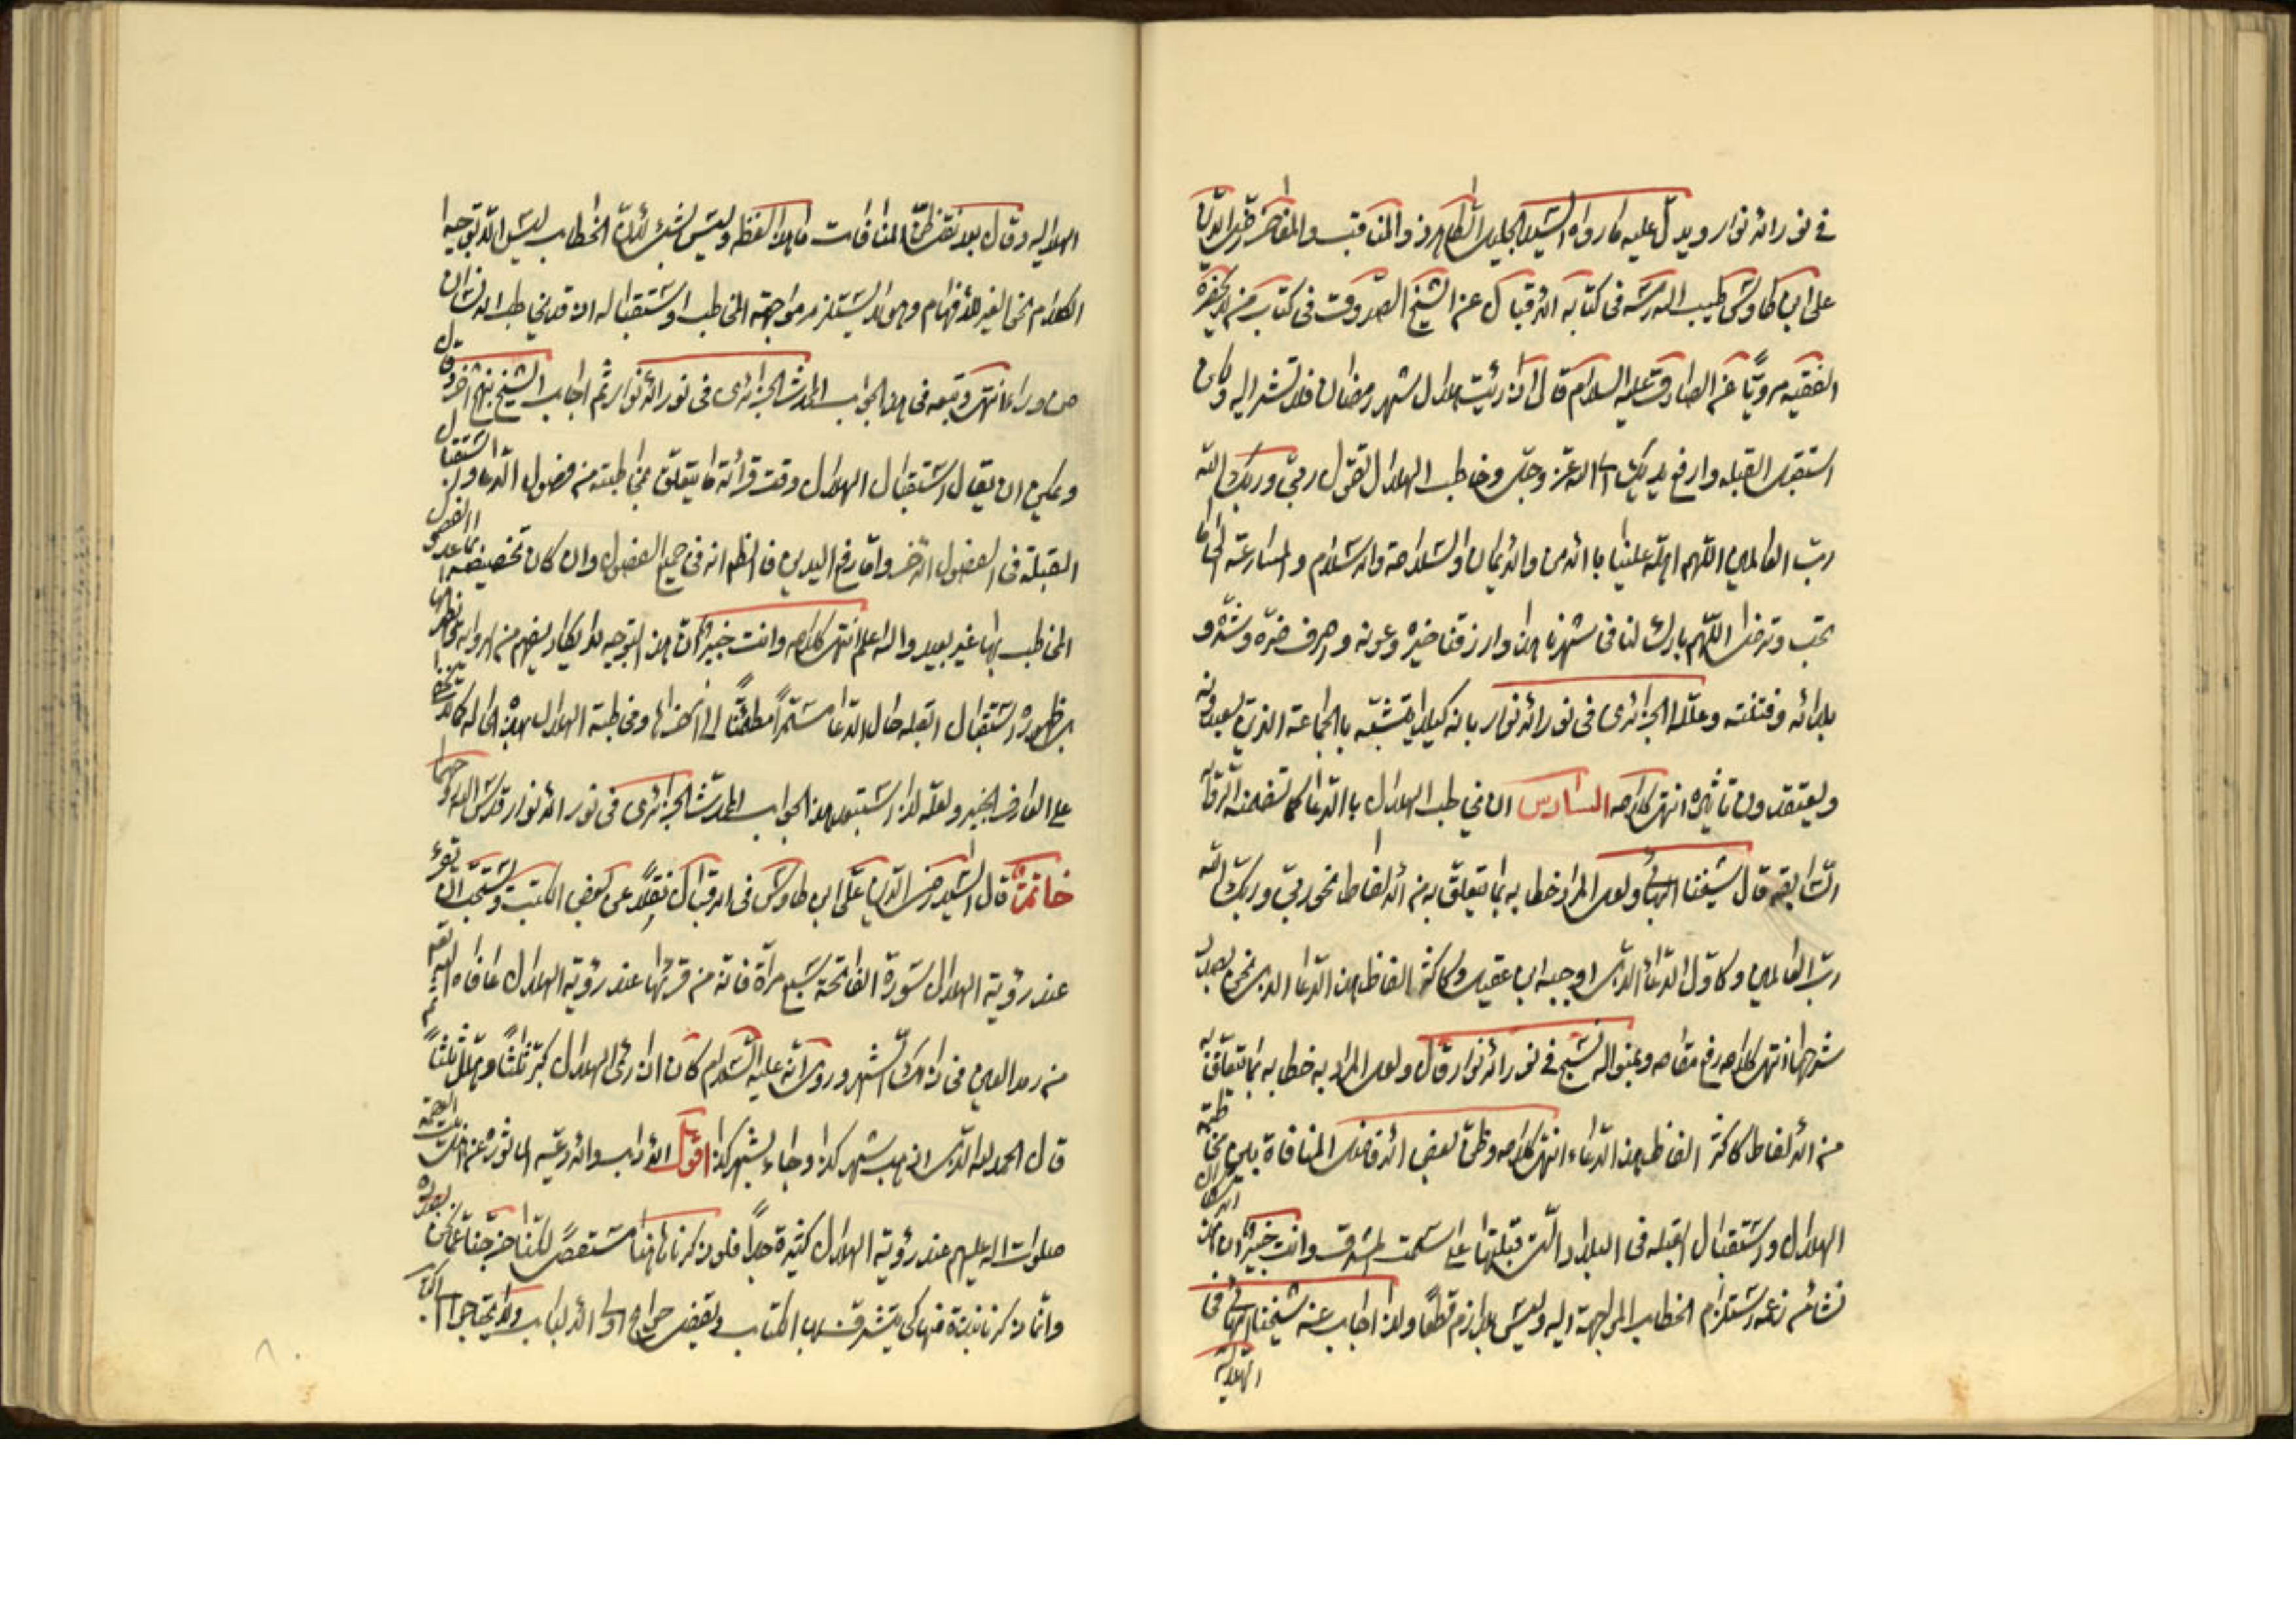 في نور الانوار ويدل عليه ما رواه السيد الجليل الطاهر ذو المناقب والمفاخر رضي الدين
علي ابن طاوس طيب الله رمسه في كتابه الاقبال عن الشيخ الصدوق في كتاب من لا يحضره
الفقيه مرويا عن الصادق عليه السلام قال اذا رئيت هلال شهر رمضان فلا تشر اليه ولكن
استقبل القبله وارفع يديك الى الله عز وجل وخاطب الهلال تقول ربي وربك الله
رب العالمين اللهم اهله علينا بالامن والايمان والسلامة والاسلام والمسارعة الى ما
تحب وترضى اللهم بارك لنا في شهرنا هذا وارزقنا خيره وعونه واصرف ضره وشره و
بلائه وفتنته وعلله الجزائري في نور الانوار بانه كيلا يتشبه بالجماعة الذين يعبدونه
ويعتقدون تاثيره انتهى كلامه السادس ان يخاطب الهلال بالدعا كما تضمنه الرواية
السابقه قال شيخنا البهائي ولعل المراد خطابه بما يتعلق به من الالفاظ نحو ربي وربك الله
رب العالمين وكاول الدعاء الذي اوجبه ابن عقيل وكاكثر الفاظ هذا الدعا الذي نحن بصدد
شرحها انتهى كلامه رفع مقامه وعلى منواله نسج في نور الانوار قال ولعل المراد به خطابه بما يتعلق به
من الالفاظ كاكثر الفاظ هذا الدعاء انتهى كلامه وظن بعض الافاضل المنافاة بين مخاطبة
الهلال واستقبال القبله في البلاد التي قبلتها على سمت المشرق وانت خبير بان هذا
نشا من زعمه استلزام الخطاب المواجهة اليه وليس بلازم قطعا ولذا اجاب عنه شيخنا البهائي في
الهلاليه
الهلاليه وقال بعد نقل ظن المنافات ما هذا لفظه وليس بشيء لان الخطاب ليس الا توجيه
الكلام نحو الغير للافهام وهو لا يستلزم مواجهة المخاطب واستقباله اذ قد يخاطب الانسان
من وراءه انتهى وتبعه في هذا الجواب المحدث الجزائري في نور الانوار ثم اجاب الشيخ بنهج اخر وقال
ويمكن ان يقال استقبال الهلال وقت قرائة ما يتعلق بمخاطبته من فصول الدعاء واستقبال
القبلة في الفصول الاخر واما رفع اليدين فالظاهر انه في جميع الفصول وان كان تخصيصه بما عدا الفصول
المخاطب بها غير بعيد والله اعلم انتهى كلامه وانت خبير بان هذا التوجيه لا يكاد يفهم من الرواية بل
استقبال القبله حال الدعا مستمرا مطمئنا الى اخرها ومخاطبة الهلال بهذه الحاله كما لا يخفى
على العارف الخبير ولعله لذا استبعد هذا الجواب المحدث الجزائري في نور الانوار قدس الله روحهما
خاتمة قال السيد رضي الدين علي ابن طاوس في الاقبال نقلا عن بعض الكتب ويستحب ان تقرء
عند رؤية الهلال سورة الفاتحة سبع مراة فانه من قرئها عند رؤية الهلال عافاه الله
من رمد العين في ذلك الشهر وروي انه عليه السلام كان اذا رئى الهلال كبر ثلثا وهلل ثلثا ثم
قال الحمد لله الذي اذهب شهر كذا وجاء بشهر كذا اقول الاداب والادعيه الماثوره عن الائمة
صلوات الله عليهم عند رؤية الهلال كثيرة جدا فلو ذكرناها هنا مستقصى لكنا خرجنا عما نحن بصدده
وانما ذكرنا نبذة منها كي يتشرف بها الكتاب ويقضى حوائج اولى الالباب ولا يحتاجوا الى